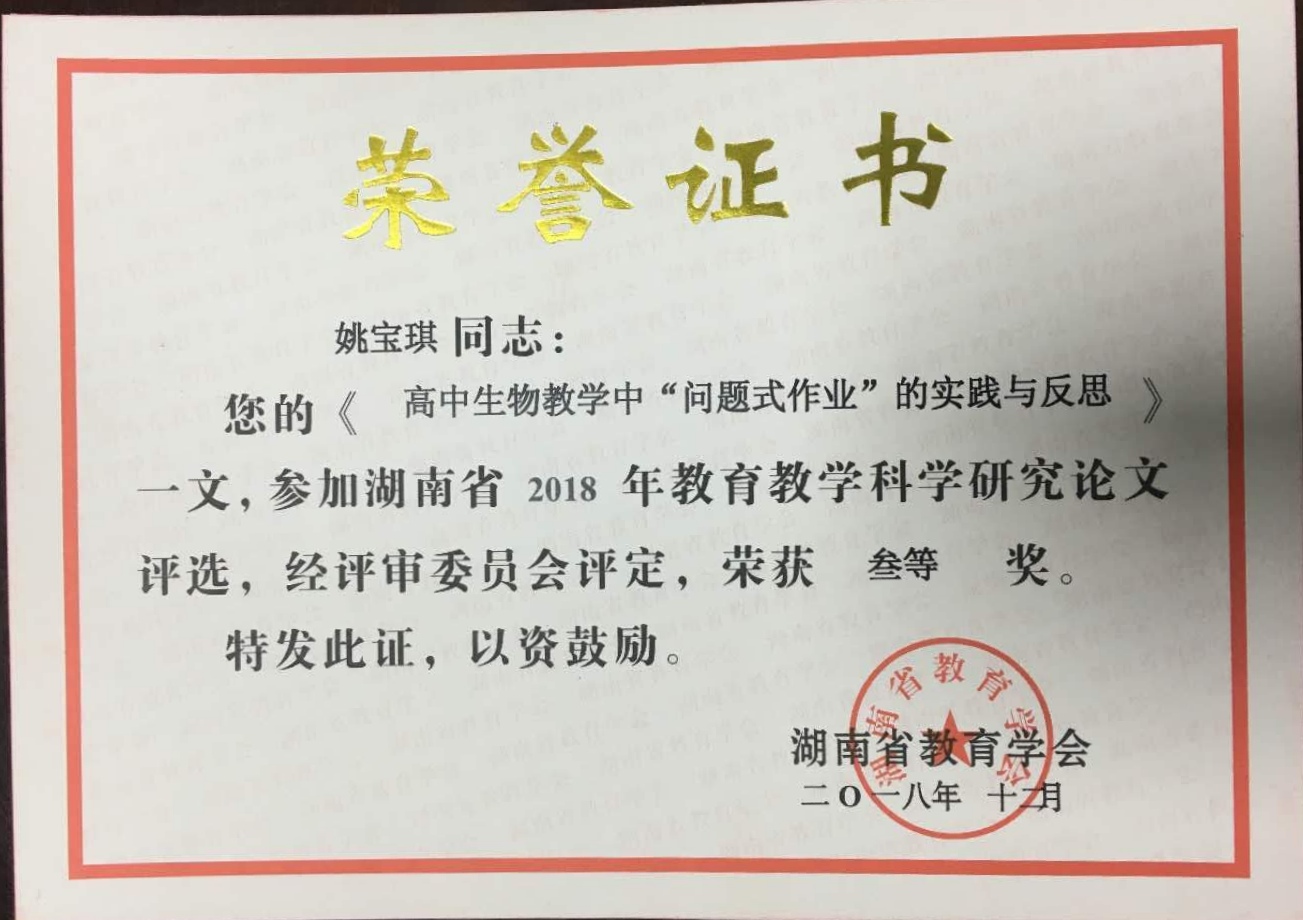 荣誉证书
姚宝琪 同志：
您的《 高中生物教学中“问题式作业”的实践与反思 》
一文，参加湖南省 2018 年教育教学科学研究论文
评选，经评审委员会评定，荣获 叁等 奖。
特发此证，以资鼓励。
湖南省教育学会
湖南省教育学会
二O一八年 十二月